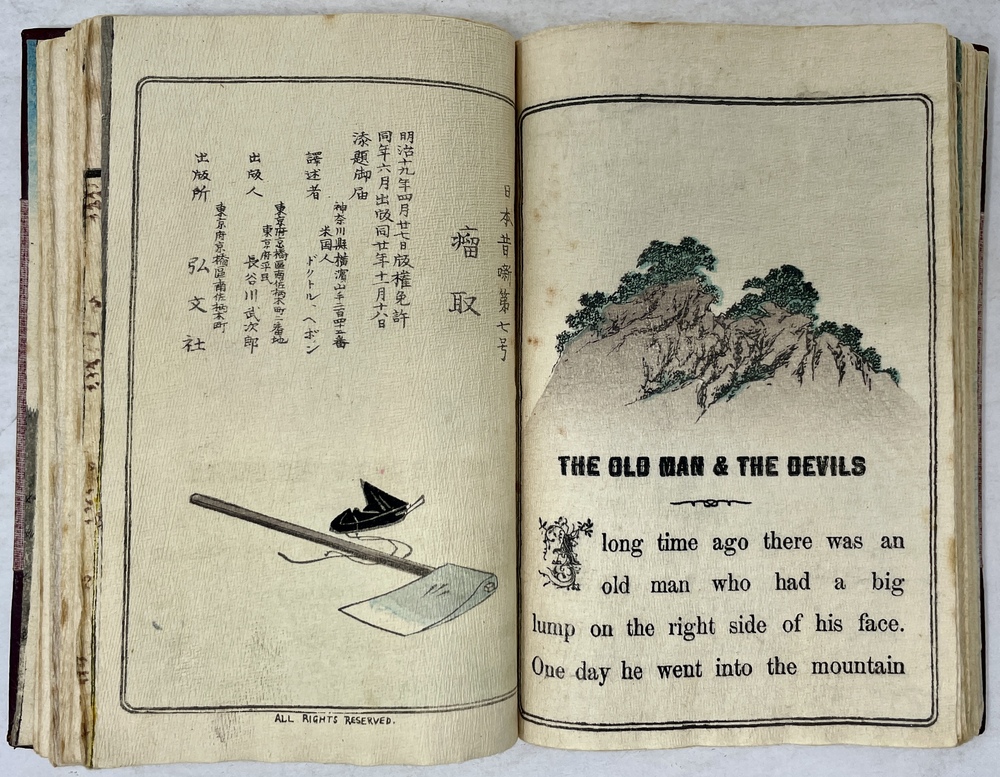 日本昔噺第七号
瘤取
明治十九年四月廿七日版權免許
同年六月出版同廿年十一月十八日
添題御届
譯述者
神奈川縣横濱山手二百四十五番
米国人 ドクトル、ヘボン
出版人
東京府京橋區南佐柄木町二番地
東京府平民 長谷川武次郎
出版所
東京府京橋區南佐柄木町
弘文社
ALL RIGHTS RESERVED.
THE OLD MAN & THE DEVILS
A long time ago there was an
old man who had a big
lump on the right side of his face.
One day he went into the mountain